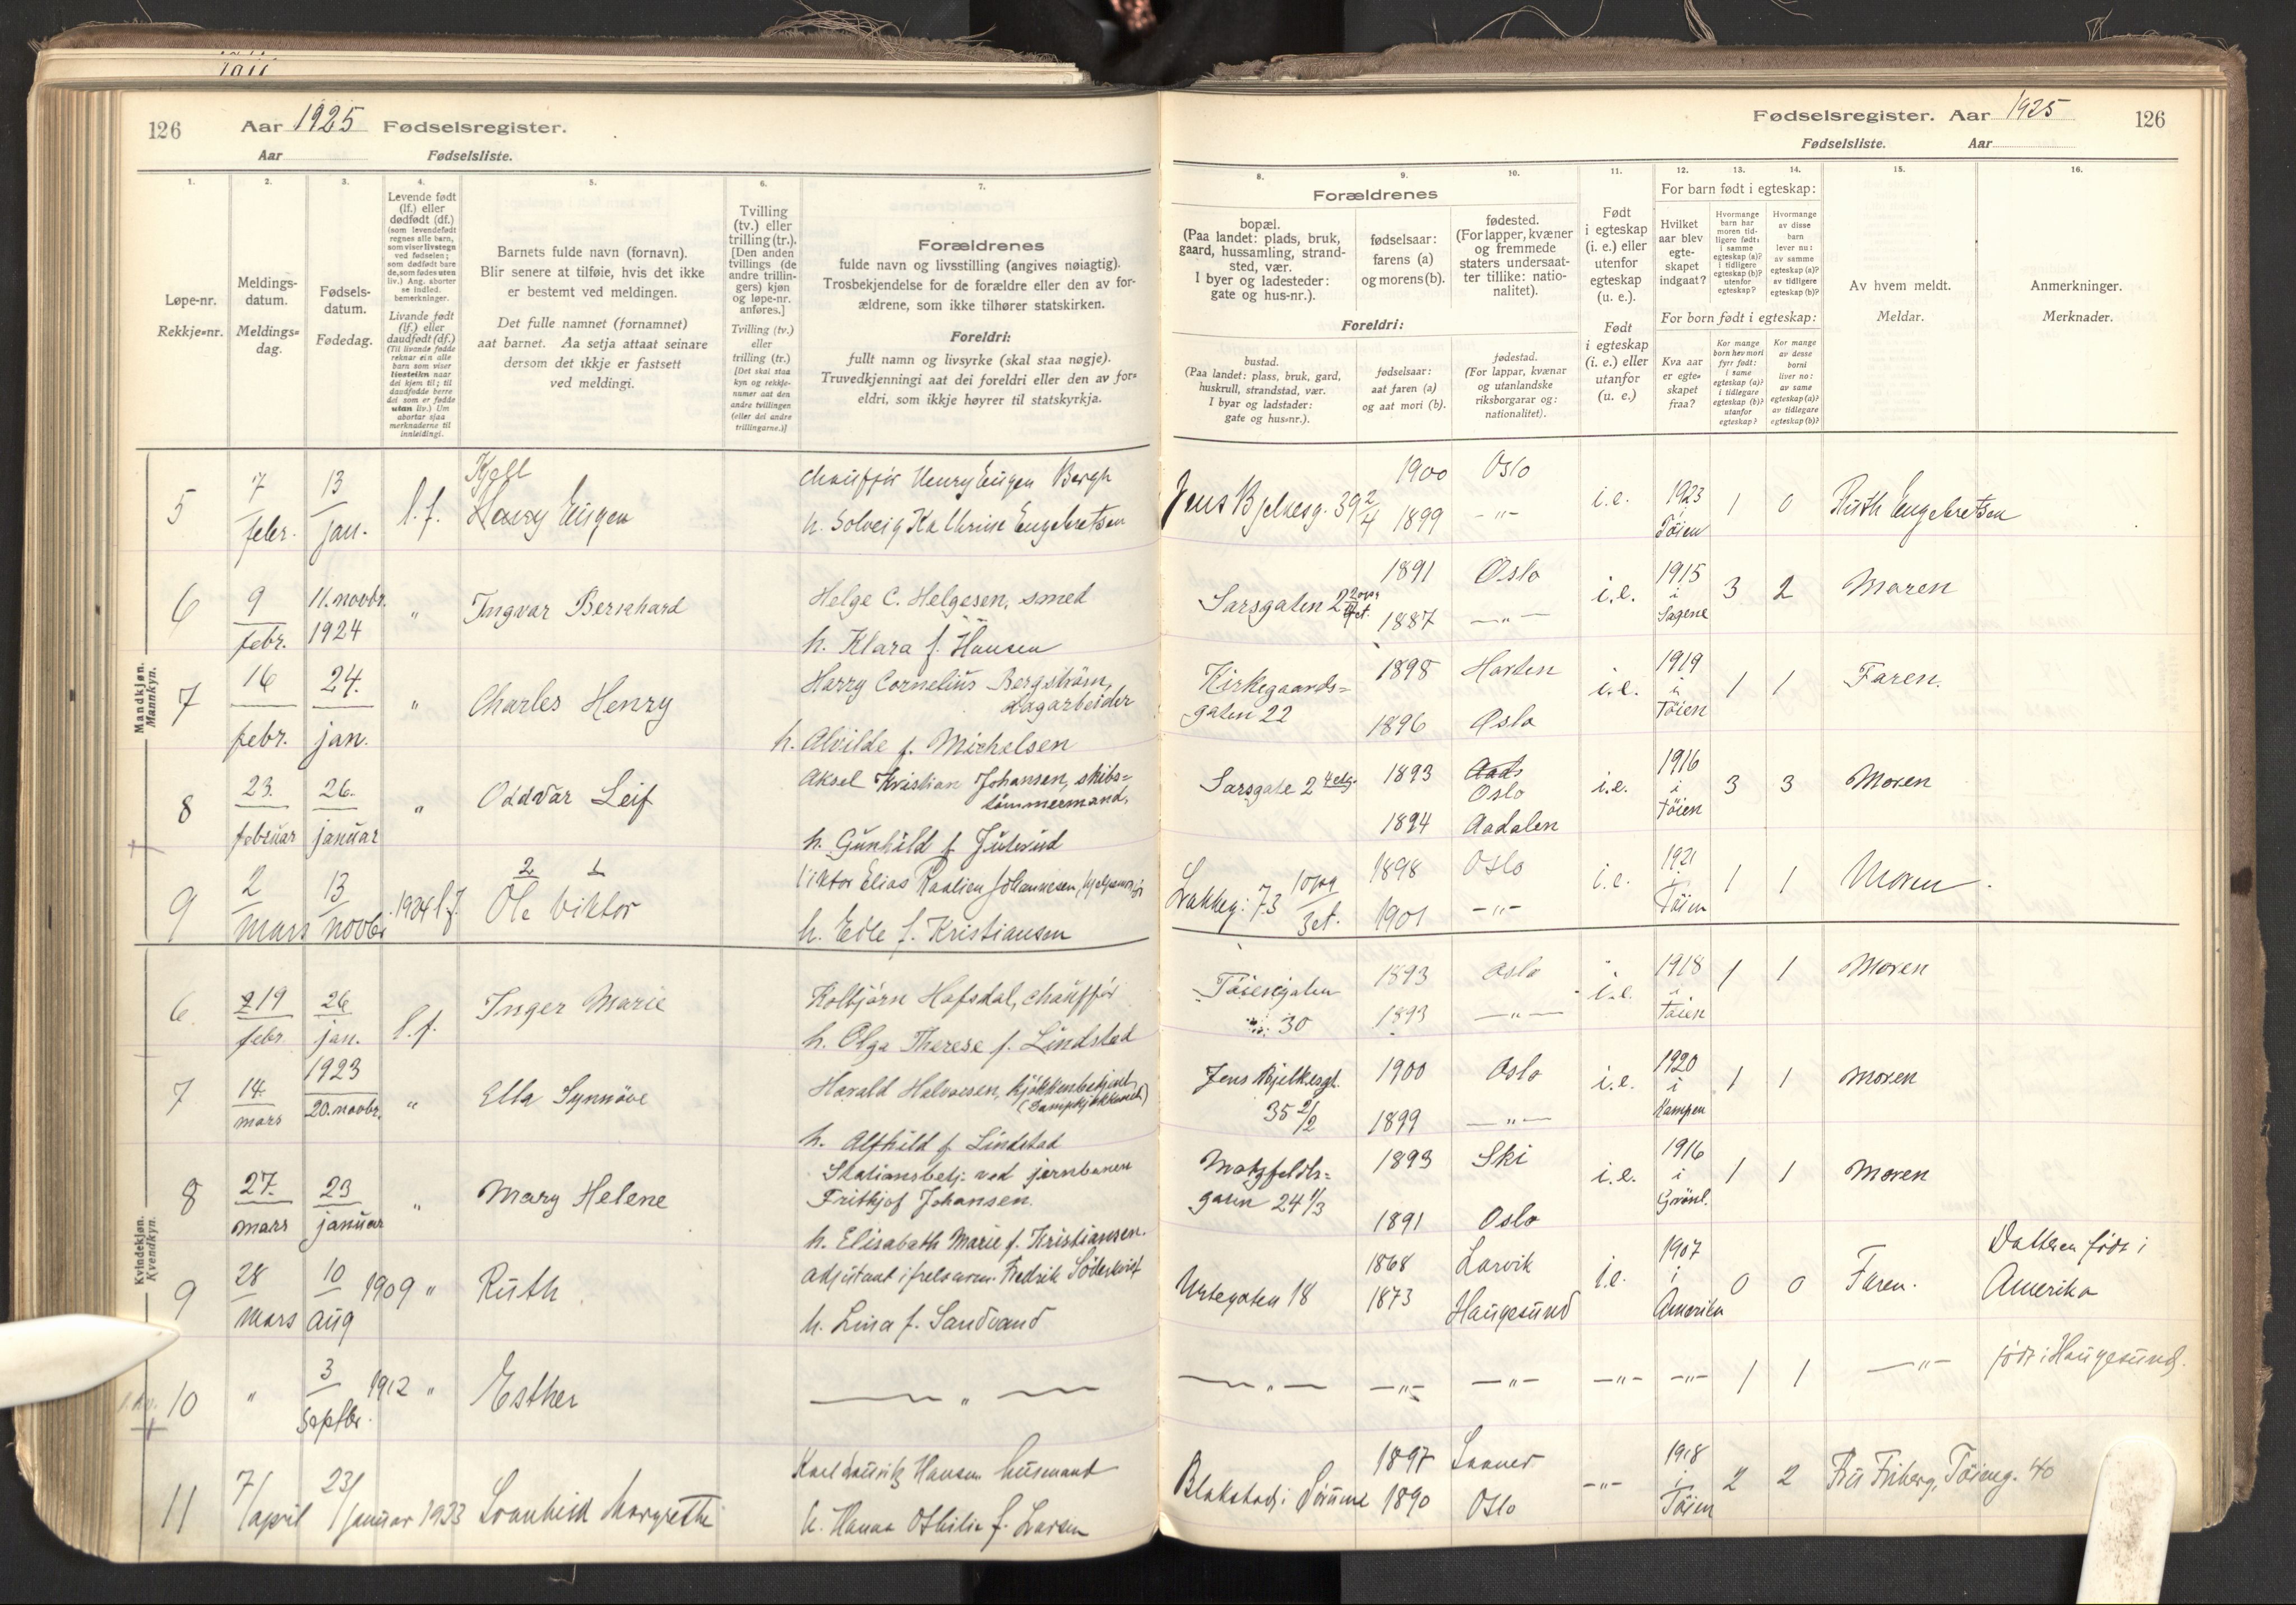 126 Aar 1925 Fødselsregister.
Aar Fødselsliste.
1.
Løpe-nr.
Rekkje-nr.
2.
Meldings-
datum.
Meldings-
dag.
3.
Fødsels-
datum.
Fødedag.
4.
Levende født
(lf.) eller
dødfødt (df.)
(som levendefødt
regnes alle barn,
som viser livstegn
ved fødselen;
som dødfødt bare
de, som fødes uten
liv.) Ang. aborter
se indled.
bemerkninger.
Livande født
(lf.) eller
daudfødt (df.)
(Til livande fødde
reknar ein alle
barn som viser
livsteikn naar
dei kjem til; til
daudfødde berre
dei som er fødde
utan liv.) Um
abortar sjaa
merknaderne til
innleidingi.
5.
Barnets fulde navn (fornavn).
Blir senere at tilføie, hvis det ikke
er bestemt ved meldingen.
Det fulle namnet (fornamnet)
aat barnet. Aa setja attaat seinare
dersom det ikkje er fastsett
ved meldingi.
6.
Tvilling
(tv.) eller
trilling (tr.).
[Den anden
tvillings (de
andre trillin-
gers) kjøn
og løpe-nr.
anføres.]
Tvilling (tv.)
eller
trilling (tr.)
[Det skal staa
kyn og rekkje-
numer aat den
andre tvillingen
(eller dei andre
trillingarne.)]
7.
Forældrenes
fulde navn og livsstilling (angives nøiagtig).
Trosbekjendelse for de forældre eller den av for-
ældrene, som ikke tilhører statskirken.
Foreldri:
fullt namn og livsyrke (skal staa nøgje).
Truvedkjenningi aat dei foreldri eller den av for-
eldri, som ikkje høyrer til statskyrkja.
Mandkjøn.
Mannkyn.
5 7 febr. 13 jan. l.f. Kjell
Harry Eugen
Chauffør Henry Eugen Bergh
h. Solveig Kathrine Engebretsen
6 9 febr. 11. novbr. 1924 " Ingvar Bernhard
Helge C. Helgesen, smed
h. Klara f. Hansen
7 16 febr. 24. jan. " Charles Henry
Harry Cornelius Bergstrøm,
dagarbeider
h. Alvilde f. Michelsen
8 23. februar 26. januar " Oddvar Leif
Aksel Kristian Johansen, skibs-
tømmermand,
h. Gunhild f.
9 2 mars 13 novbr. 1924 l.f. 2 1
Ole Viktor
Viktor Elias Johannesen,
h. Edle f. Kristiansen
Kvindekjøn.
Kvendkyn.
6 19 febr. 26 jan. l.f. Inger Marie
Kolbjørn Hofsdal, chauffør
h. Olga Therese f. Lindstad
7 14. mars 1923 20. novbr. " Ella Synnøve
Harald Halvorsen, kjøkkenbetjent
(Dampkjøkkenet)
h. Alfhild f. Lindstad
8 27. mars 23 januar " Mary Helene
Stationsbetj. ved jernbanen
Frithjof Johansen.
h. Elisabeth Marie f. Kristiansen.
9 28 mars 10 aug 1909 " Ruth
adjutant i frelsearm. Fredrik Søderkvist
h. Lina f. Sandvand
10 " 3 septbr. 1912 " Esther
— " —
11 7/april 23/januar 1923 Svanhild Margrethe
Karl Lauritz Hansen husmand
h. Hanna Othilie f. Larsen
Fødselsregister. Aar 1925 126
Fødselsliste. Aar
8.
Forældrenes
bopæl.
(Paa landet: plads, bruk,
gaard, hussamling, strand-
sted, vær.
I byer og ladesteder:
gate og hus-nr.).
Foreldri:
bustad.
(Paa landet: plass, bruk, gard,
huskrull, strandstad, vær.
I byar og ladstader:
gate og hus-nr.).
9.
fødselsaar:
farens (a)
og morens (b).
fødselsaar:
aat faren (a)
og aat mori (b).
10.
fødested.
(For lapper, kvæner
og fremmede
staters undersaat-
ter tillike: natio-
nalitet).
fødestad.
(For lappar, kvænar
og utanlandske
riksborgarar og:
nationalitet).
11.
Født
i egteskap
(i. e.) eller
utenfor
egteskap
(u. e.).
Født
i egteskap
(i. e.) eller
utanfor
(u. e.)
12.
For barn født i egteskap:
Hvilket
aar blev
egte-
skapet
indgaat?
For born født i egteskap:
Kva aar
er egte-
skapet
fraa?
13.
Hvormange
barn har
moren tid-
ligere født:
i samme
egteskap (a)?
i tidligere
egteskap (b)?
utenfor
egteskap?
Kor mange
born hev mori
fyrr født:
i same
egteskap (a)?
i tidlegare
egteskap (b)?
utanfor
egteskap?
14.
Hvormange
av disse
barn
lever nu:
av samme
egteskap (a)?
av tidligere
egteskap (b)?
Kor mange
av desse
borni
liver no:
av same
egteskap (a)?
av tidlegare
egteskap (b)?
15.
Av hvem meldt.
Meldar.
16.
Anmerkninger.
Merknader.
Jens Bjelkesg. 39 2/4 1900 Oslo
1899 -"- i.e. 1923 Tøien 1 0 Ruth Engebretsen
Sarsgaten 2 1891 Oslo
1887 -"- i.e. 1915 i Sagene 3 2 Moren
Kirkegaards-
gaten 22 1898 Horten
1896 Oslo i.e. 1919 i Tøien 1 1 Faren.
Sarsgate 2 4 etg. 1893 Oslo
1894 Aadalen i.e. 1916 i Tøien 3 3 Moren
Lakkeg. 73 opg 3 et. 1898 Oslo
1901 -"- i.e. 1921 i Tøien 1 1 Moren
Tøiengaten
30 1893 Oslo
1893 -"- i.e. 1918 i Tøien 1 1 Moren
Jens Bjelkesgt.
35 2/2 1900 Oslo
1899 -"- i.e. 1920 i Kampen 1 1 Moren
Motzfeldts-
gaten 24 1/3 1893 Ski
1891 Oslo i.e. 1916 i Grønl. 1 1 Moren
Urtegaten 18 1868 Larvik
1873 Haugesund i.e. 1907 i Amerika 0 0 Faren. Datteren født i
Amerika
—"— —"— —"— —"— —"— 1 1 —"— født i Haugesund.
Blakstad i Sørum 1897
1890 Oslo -"- 1918 i Tøien 2 2 Fru Friberg, Tøieng. 40